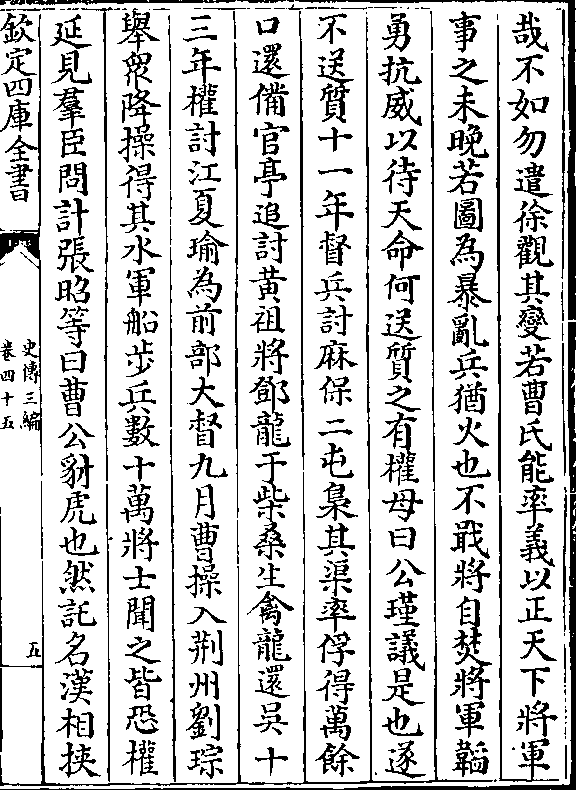 哉不如勿遣徐觀其變若曹氏能率義以正天下將軍
事之未晚若圖為暴亂兵猶火也不戢將自焚將軍韜
勇抗威以待天命何送質之有權母曰公瑾議是也遂
不送質十一年督兵討麻保二屯梟其渠率俘得萬餘
口還備官亭追討黃祖將鄧龍于柴桑生禽龍還吳十
三年權討江夏瑜為前部大督九月曹操入荆州劉琮
舉衆降操得其水軍船步兵數十萬將士聞之皆恐權
延見羣臣問計張昭等曰曹公豺虎也然託名漢相挾
欽定四庫全書
史傳三編
卷四十五
五